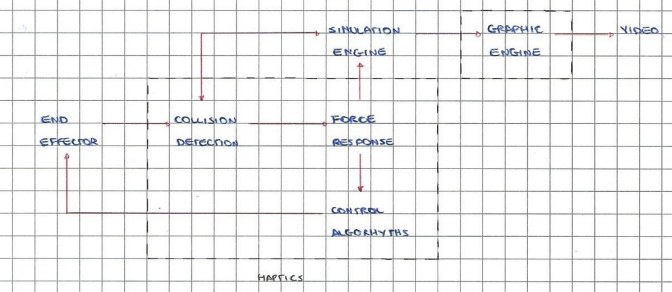 SIMULATION
ENGINE
GRAPHIC
ENGINE
VIDEO
END
EFFECTOR
COLLISION
DETECTION
FORCE
RESPONSE
CONTROL
ALGORHYTHS
HAPTICS